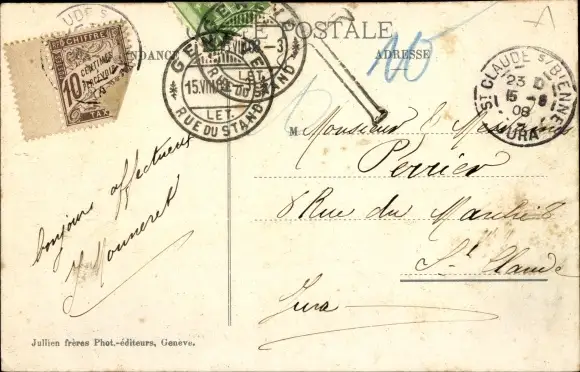 CARTE POSTALE
ADRESSE
10
CHIFFRE
10 CENTIMES
A PERCEVOIR
TAX
GENÈVE
15.VIII.08
LET.
RUE DU STAND
ST CLAUDE S/BIENNE
23
15 -8
08
JURA
T
M Monsieur &
Perrier
8 Rue du Marché 8
St Claude
Jura
bonjour affectueux
J Monneret
Jullien frères Phot.-éditeurs, Genève.